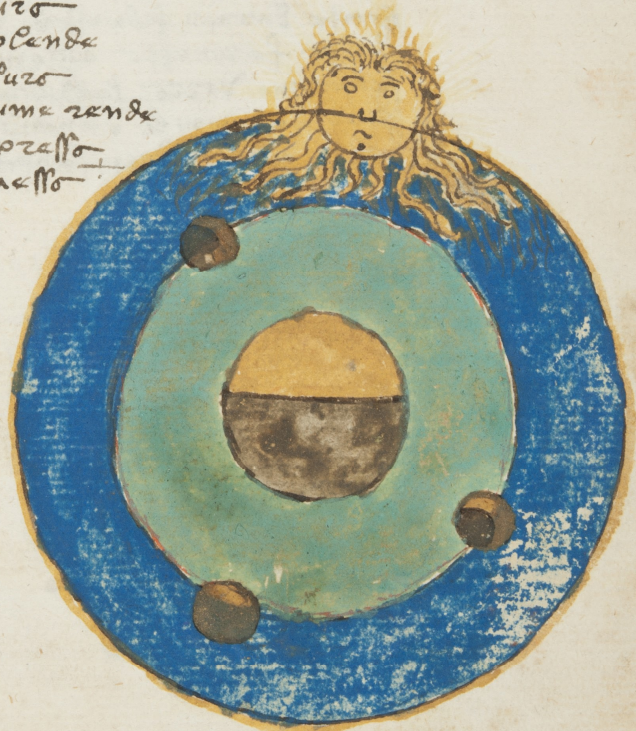 uro
plende
uro
ume rende
presso
esso